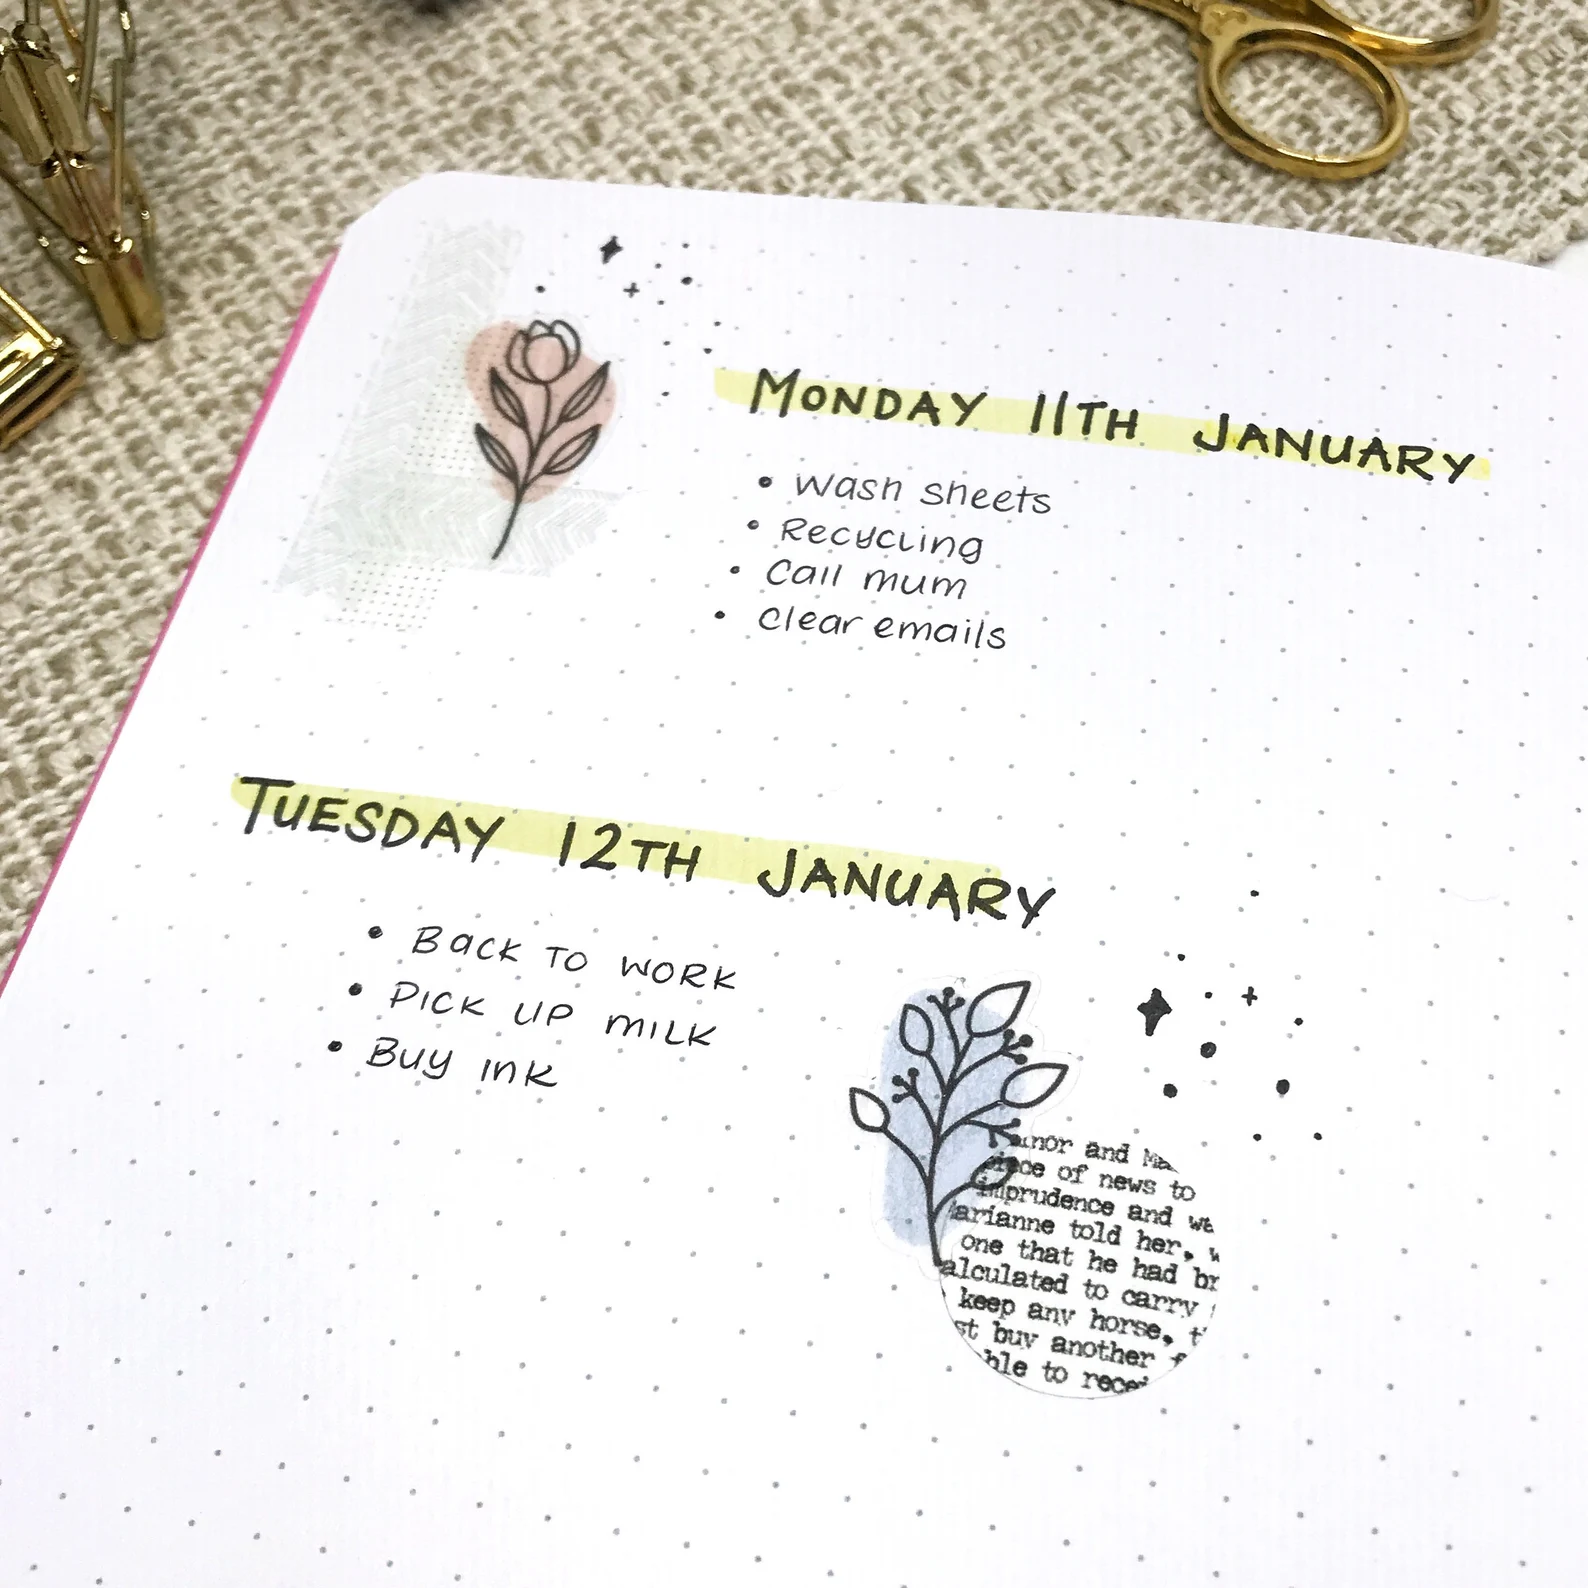 MONDAY 11TH JANUARY
• Wash sheets
• Recycling
• Call mum
• Clear emails
TUESDAY 12TH JANUARY
• Back to work
• Pick up milk
• Buy ink
and
piece of news to
imprudence and
arianne told her.
one that he had
alculated to carry
keep any horse.
st buy another
ble to